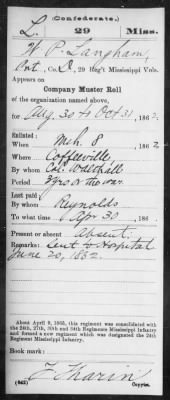 (Confederate.)
L. 29 Miss.
W. P. Langham,
Pvt., Co. D, 29 Reg't Mississippi Vols.
Appears on
Company Muster Roll
of the organization named above,
for Aug. 30 to Oct 31, 186 .
Enlisted:
When Mch. 8, 1862
Where Coffeeville
By whom Col. Walthall
Period 3 yrs or the war.
Last paid:
By whom Reynolds
To what time Apr 30, 186 .
Present or absent Absent.
Remarks: Sent to Hospital
June 20, 1862.
About April 9, 1865, this regiment was consolidated
with the 24th, 27th, 30th and 34th Regiments Mississippi Infantry
and formed a new regiment which was designated the 24th
Regiment Mississippi Infantry.
Book mark:
(642) Copyist.